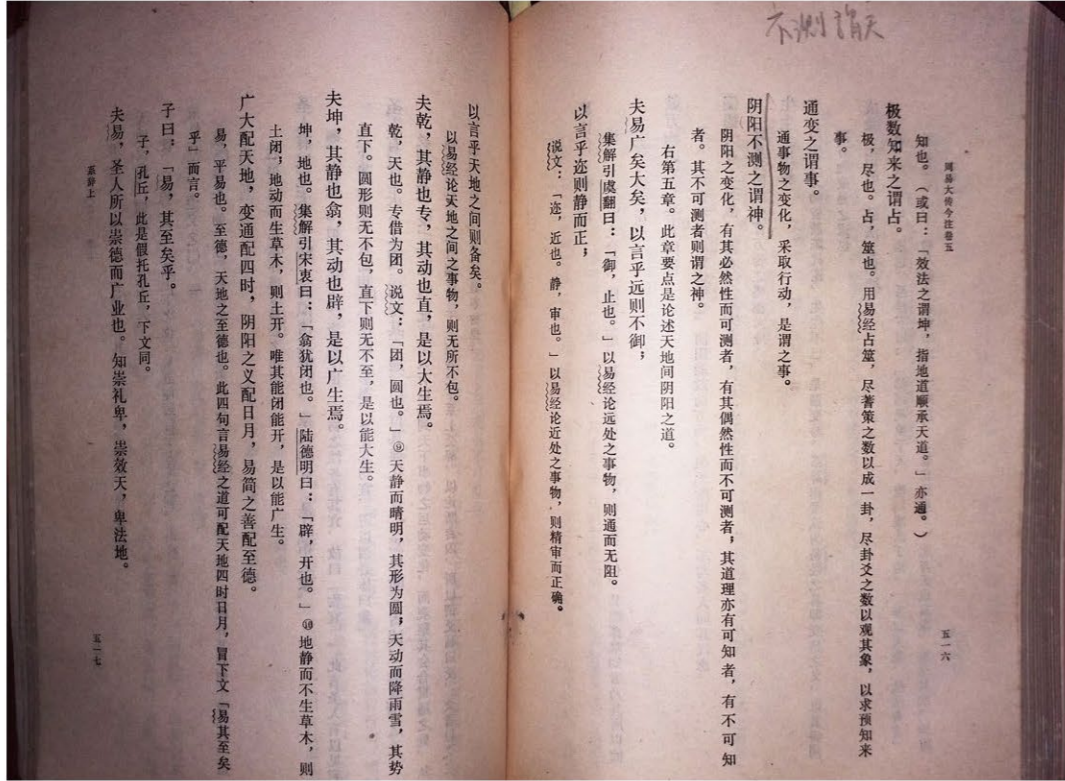 不测谓天
周易大传今注卷五
知也。（或曰：「效法之谓坤，指地道顺承天道。」亦通。）
极数知来之谓占。
极，尽也。占，筮也。用易经占筮，尽蓍策之数以成一卦，尽卦爻之数以观其象，以求预知来
事。
通变之谓事。
通事物之变化，采取行动，是谓之事。
阴阳不测之谓神。
阴阳之变化，有其必然性而可测者，有其偶然性而不可测者，其道理亦有可知者，有不可知
者。其不可测者则谓之神。
右第五章。此章要点是论述天地间阴阳之道。
夫易广矣大矣，以言乎远则不御；
集解引虞翻曰：「御，止也。」以易经论远处之事物，则通而无阻。
以言乎迩则静而正；
说文：「迩，近也。静，审也。」以易经论近处之事物，则精审而正确。
五一六
以言乎天地之间则备矣。
以易经论天地之间之事物，则无所不包。
夫乾，其静也专，其动也直，是以大生焉。
乾，天也。专借为团。说文：「团，圆也。」⑨天静而晴明，其形为圆，天动而降雨雪，其势
直下。圆形则无不包，直下则无不至，是以能大生。
夫坤，其静也翕，其动也辟，是以广生焉。
坤，地也。集解引宋衷曰：「翕犹闭也。」陆德明曰：「辟，开也。」⑩地静而不生草木，则
土闭，地动而生草木，则土开。唯其能闭能开，是以能广生。
广大配天地，变通配四时，阴阳之义配日月，易简之善配至德。
易，平易也。至德，天地之至德也。此四句言易经之道可配天地四时日月，冒下文「易其至矣
乎」而言。
子曰：「易，其至矣乎。
子，孔丘，此是假托孔丘，下文同。
夫易，圣人所以崇德而广业也。知崇礼卑，崇效天，卑法地。
系辞上
五一七